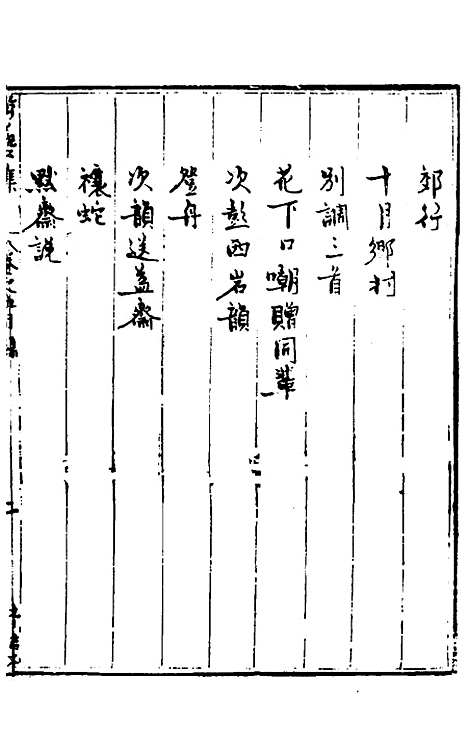 郊行
十月鄉村
別調三首
花下口嘲贈同輩
次彭西岩韻
登舟
次韻送益齋
禳蛇
默齋說